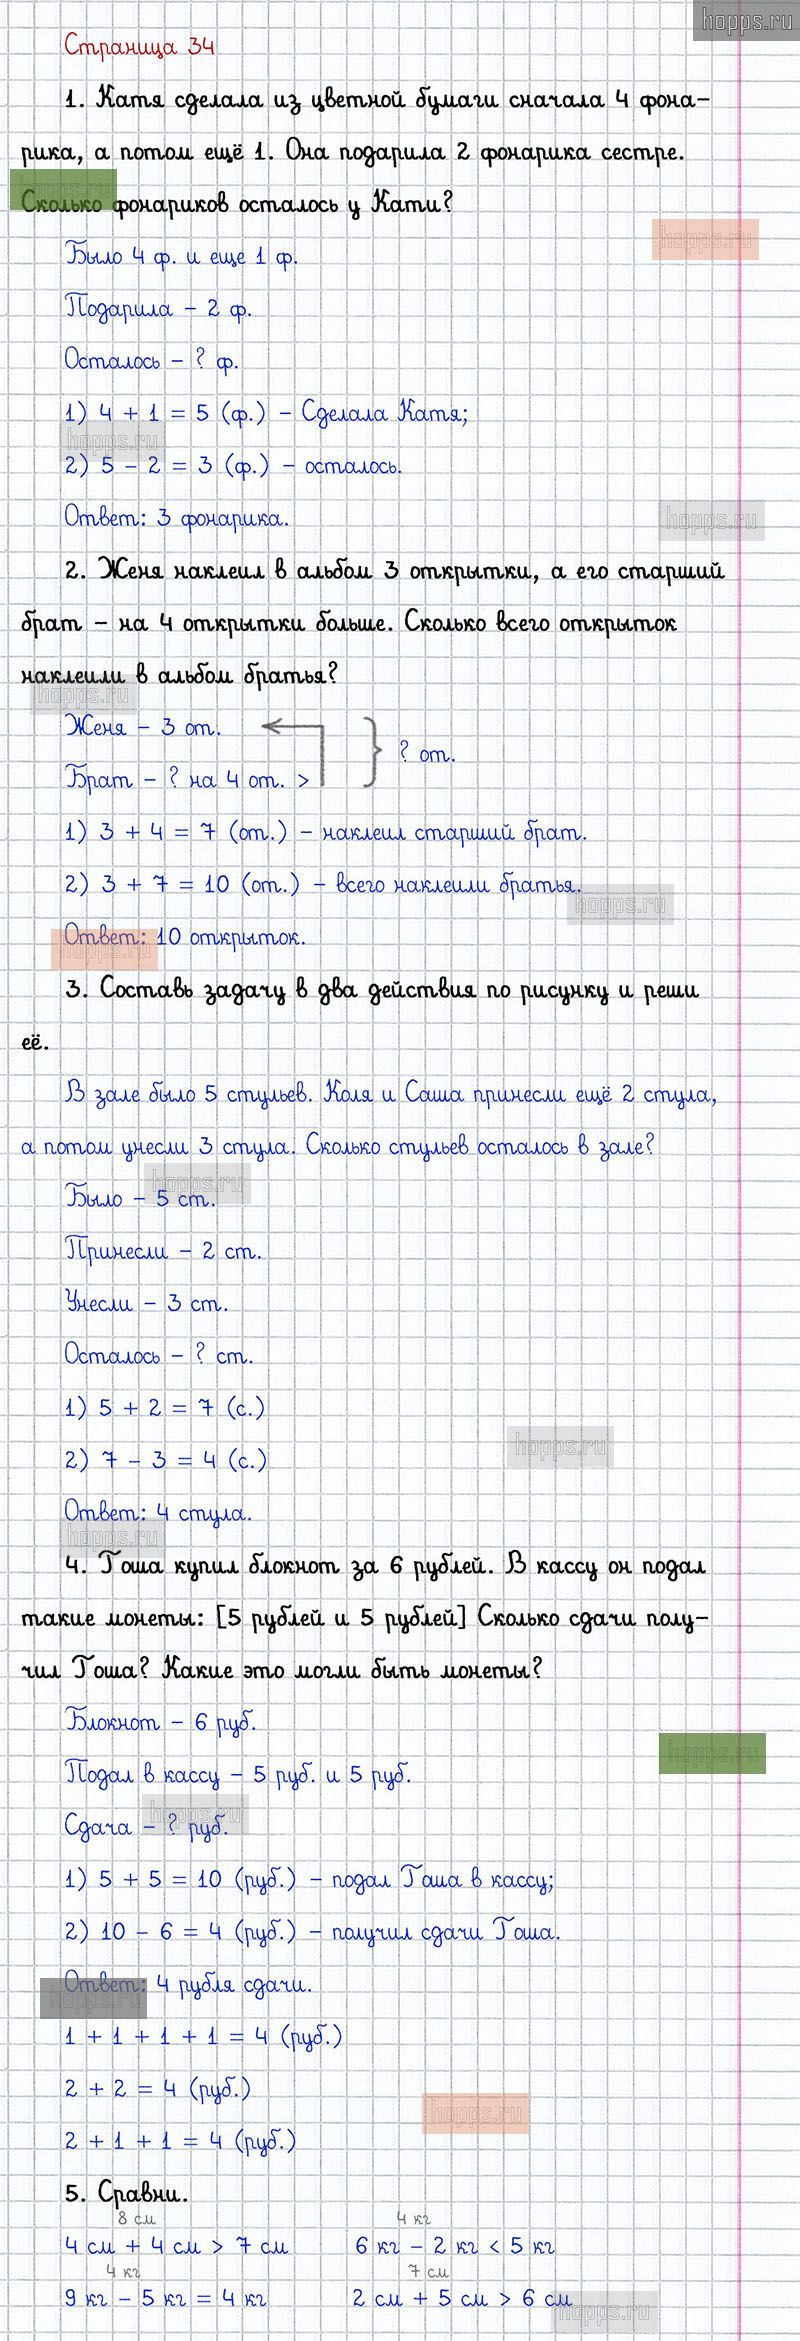 hopps.ru
Страница 34
1. Катя сделала из цветной бумаги сначала 4 фона-
рика, а потом ещё 1. Она подарила 2 фонарика сестре.
hopps.ru
Сколько фонариков осталось у Кати?
hopps.ru
Было 4 ф. и еще 1 ф.
Подарила – 2 ф.
Осталось – ? ф.
1) 4 + 1 = 5 (ф.) – Сделала Катя;
hopps.ru
2) 5 – 2 = 3 (ф.) – осталось.
Ответ: 3 фонарика.
hopps.ru
2. Женя наклеил в альбом 3 открытки, а его старший
брат – на 4 открытки больше. Сколько всего открыток
наклеили в альбом братья?
hopps.ru
Женя – 3 от.
? от.
Брат – ? на 4 от. >
1) 3 + 4 = 7 (от.) – наклеил старший брат.
2) 3 + 7 = 10 (от.) – всего наклеили братья.
hopps.ru
Ответ: 10 открыток.
hopps.ru
3. Составь задачу в два действия по рисунку и реши
её.
В зале было 5 стульев. Коля и Саша принесли ещё 2 стула,
а потом унесли 3 стула. Сколько стульев осталось в зале?
hopps.ru
Было – 5 ст.
Принесли – 2 ст.
Унесли – 3 ст.
Осталось – ? ст.
1) 5 + 2 = 7 (с.)
hopps.ru
2) 7 – 3 = 4 (с.)
Ответ: 4 стула.
hopps.ru
4. Гоша купил блокнот за 6 рублей. В кассу он подал
такие монеты: [5 рублей и 5 рублей] Сколько сдачи полу-
чил Гоша? Какие это могли быть монеты?
Блокнот – 6 руб.
hopps.ru
Подал в кассу – 5 руб. и 5 руб.
hopps.ru
Сдача – ? руб.
1) 5 + 5 = 10 (руб.) – подал Гоша в кассу;
2) 10 – 6 = 4 (руб.) – получил сдачи Гоша.
Ответ: 4 рубля сдачи.
hopps.ru
1 + 1 + 1 + 1 = 4 (руб.)
2 + 2 = 4 (руб.)
hopps.ru
2 + 1 + 1 = 4 (руб.)
5. Сравни.
8 см 4 кг
4 см + 4 см > 7 см 6 кг – 2 кг < 5 кг
4 кг 7 см
9 кг – 5 кг = 4 кг 2 см + 5 см > 6 см
hopps.ru